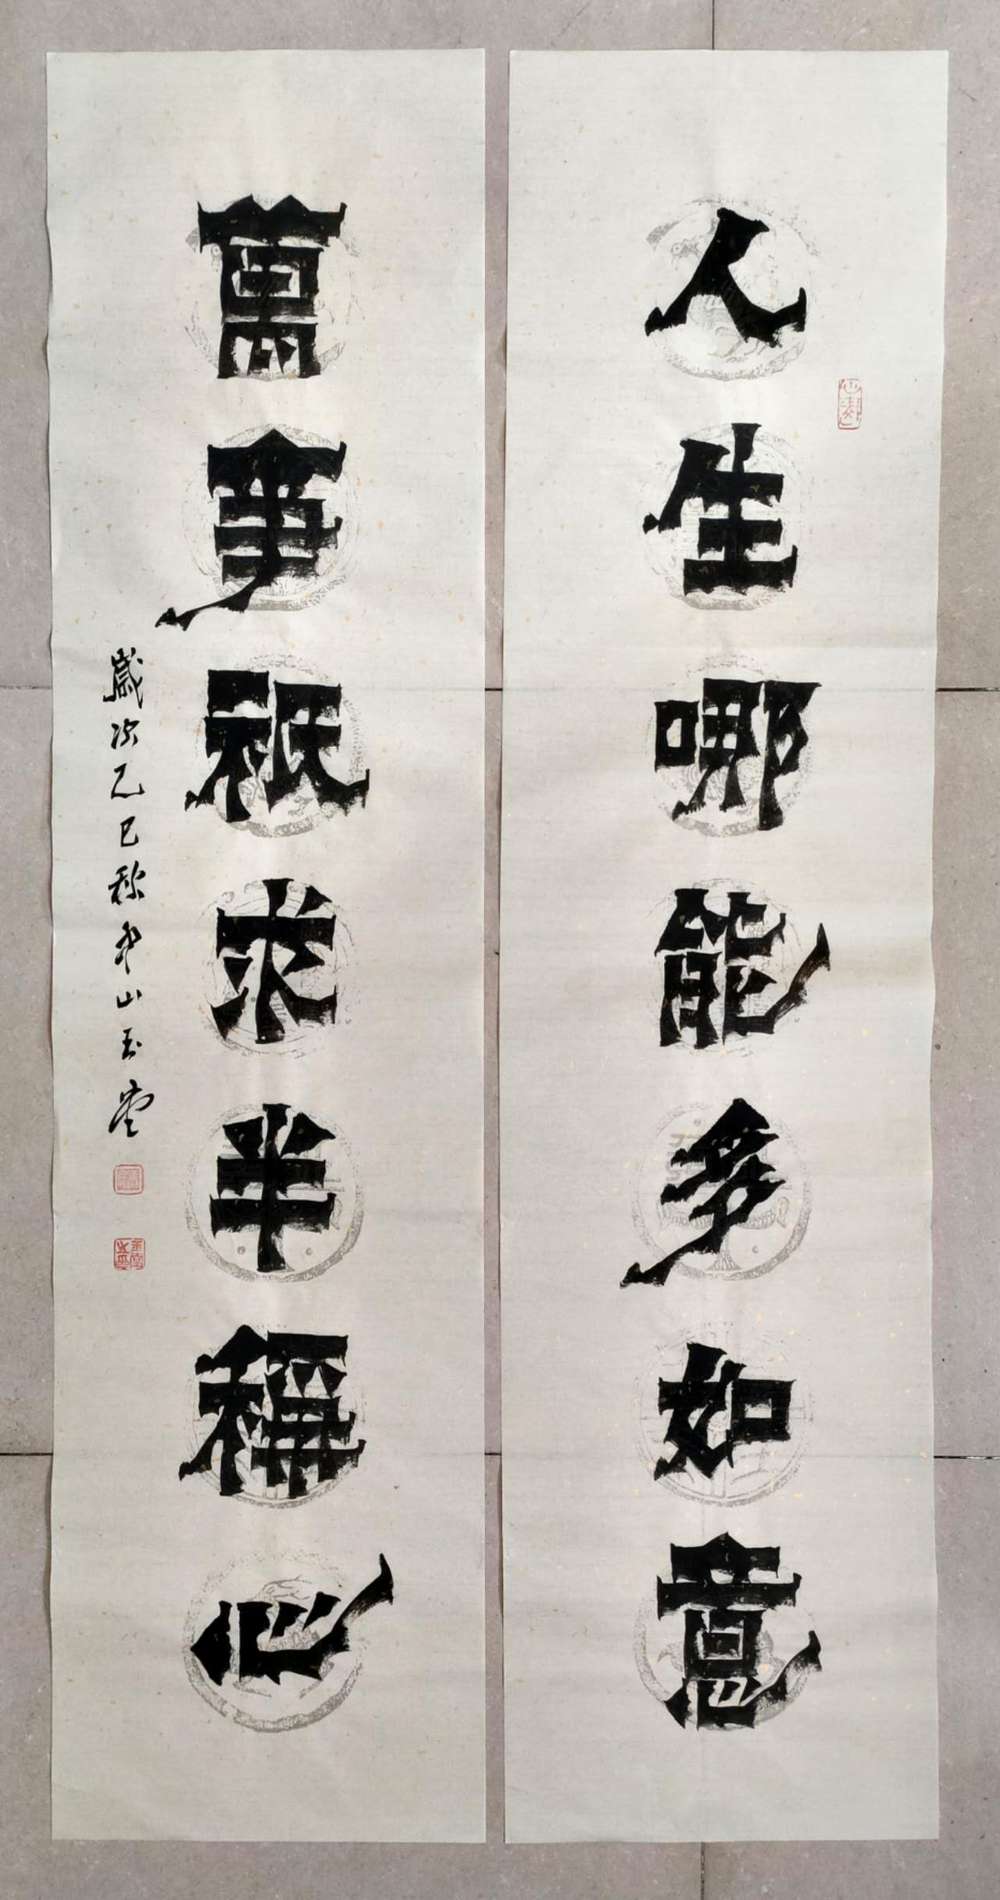 人生哪能多如意
萬事祇求半稱心
歲次乙巳秋年山玉堂